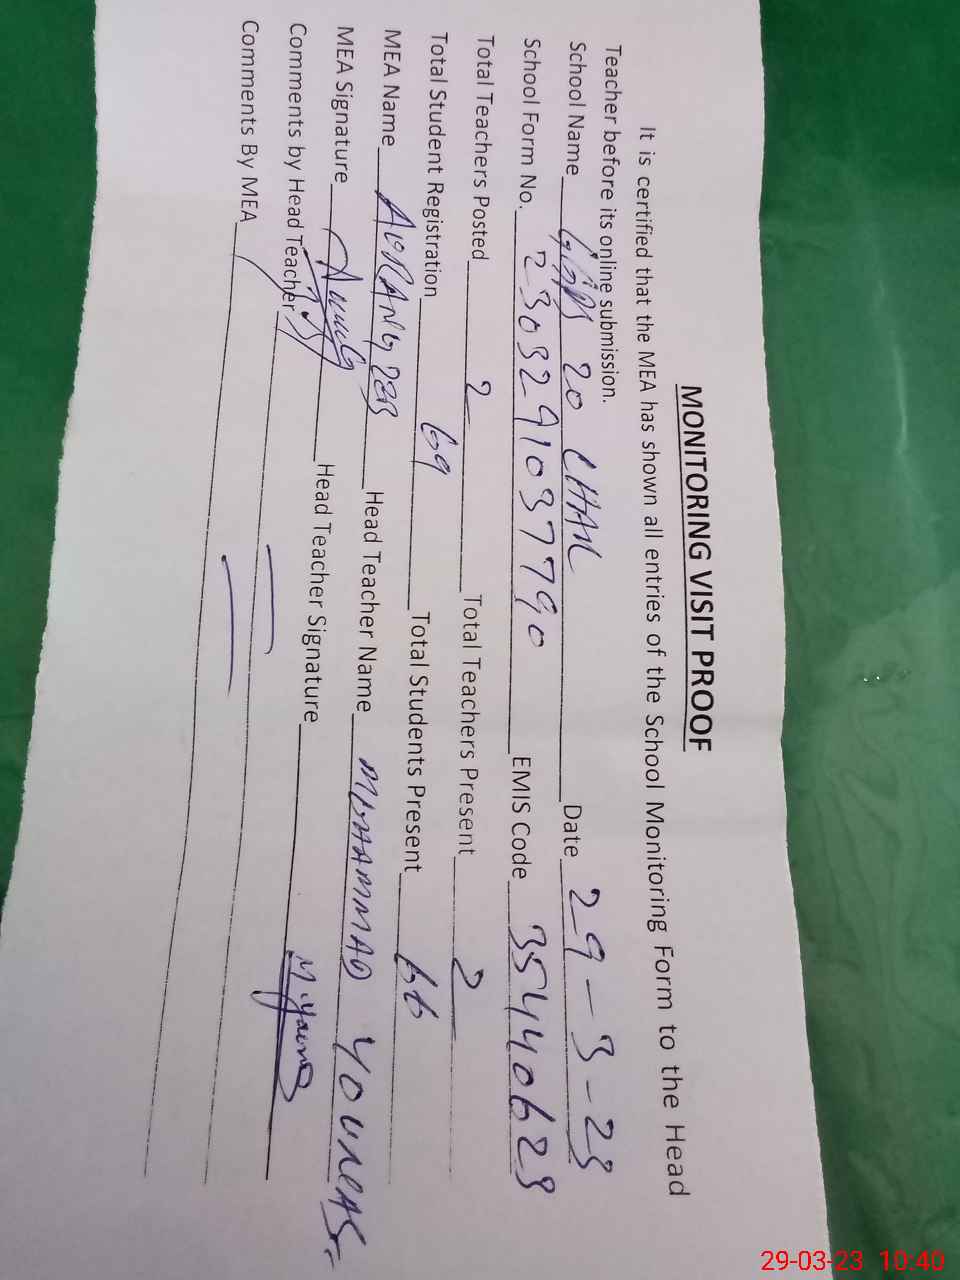 MONITORING VISIT PROOF
It is certified that the MEA has shown all entries of the School Monitoring Form to the Head
Teacher before its online submission.
School Name 20 CHAK Date 29-3-23
School Form No. 2303291037790 EMIS Code 35440623
Total Teachers Posted 2 Total Teachers Present 2
Total Student Registration 69 Total Students Present 66
MEA Name AURANGZEB Head Teacher Name MUHAMMAD YOUNAS
MEA Signature Head Teacher Signature M.Younas
Comments by Head Teacher
Comments By MEA
29-03-23 10:40